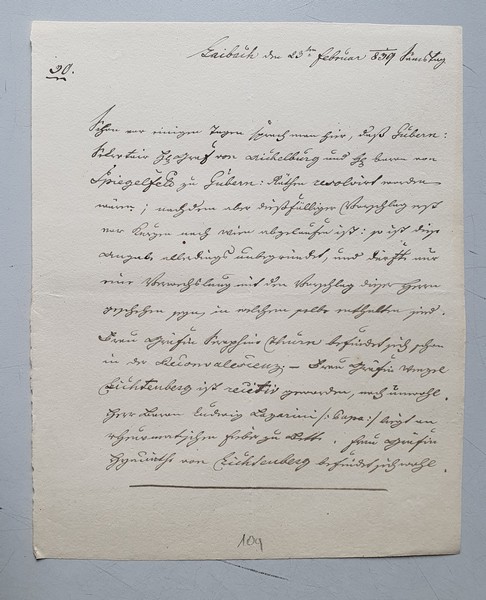 Laibach den 23ten Februar 839 Samstag
30.
Schon vor einigen Tagen sprach man hier, daß Gubern:
Sekretair H: Graf von Aichelburg und H: Baron von
Spiegelfeld zu Gubern: Räthen resolvirt worden
wären; nachdem aber dießfälliger Vorschlag erst
vor kurzem nach Wien abgelaufen ist: so ist diese
Angabe allerdings unbegründet, und dürfte nur
eine Verwechslung mit dem Vorschlag dieser Herrn
geschehen seyn, in welchem selbe enthalten sind.
Frau Gräfin Seraphine Thurn befindet sich schon
in der Reconvalescenz; – Frau Gräfin
Lichtenberg ist geworden, noch unwohl.
Herr Baron Ludwig Lazarini /: Papa :/ liegt an
rheumatischem Fieber zu Bette. Frau Gräfin
Hyacinthe von Lichtenberg befindet sich wohl.
109